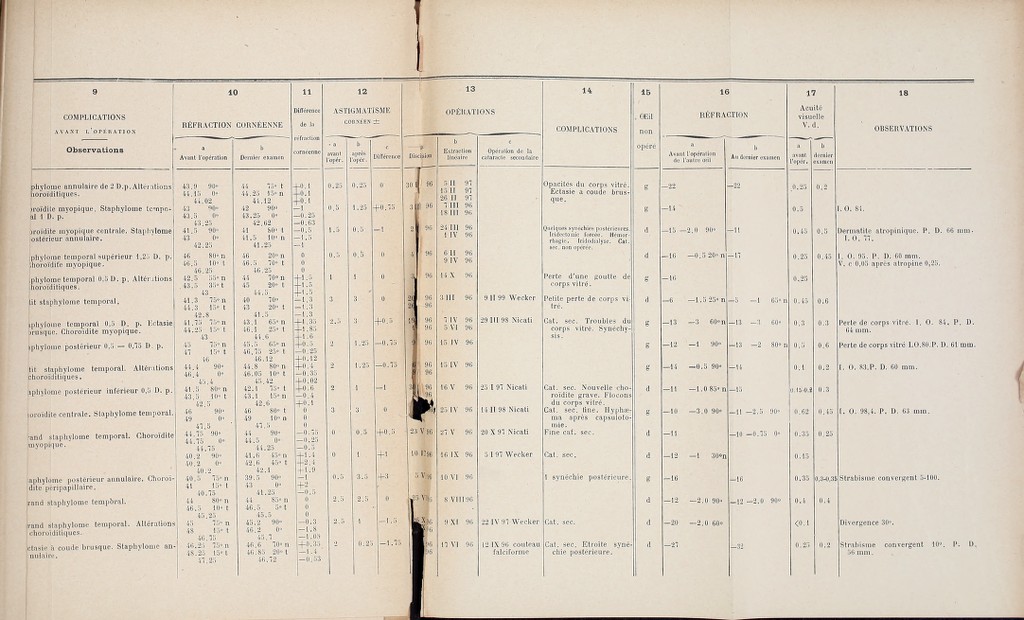 9 10 11 12 13 14 15 16 17 18
COMPLICATIONS
AVANT L'OPERATION
Observations
RÉFRACTION CORNÉENNE
a Avant l'opération
b Dernier examen
Différence de la réfraction cornéenne
ASTIGMATISME
CORNÉEN ±
a avant l'opér.
b après l'opér.
c Différence
OPÉRATIONS
a Discision
b Extraction linéaire
c Opération de la cataracte secondaire
COMPLICATIONS
Œil non opéré
RÉFRACTION
a Avant l'opération de l'autre œil
b Au dernier examen
Acuité visuelle V. d.
a avant l'opér.
b dernier examen
OBSERVATIONS
phylome annulaire de 2 D.p. Altérations 43,9 90° 44 75° t +0,1 0,25 0,25 0 96 5 II 97 Opacités du corps vitré. g —22 —22 0,25 0,2
horoïditiques. 44,15 0° 44,25 15° n +0,1 15 II 97 Ectasie à coude brus-
44,02 44,12 +0,1 26 II 97 que.
oroïdite myopique. Staphylome tempo- 43 90° 42 90° —1 0,5 1,25 +0,75 96 7 III 96 g —14 0,5 I. O. 84.
al 1 D. p. 43,5 0° 43,25 0° —0,25 18 III 96
43,25 42,62 —0,63
oroïdite myopique centrale. Staphylome 41,5 90° 41 80° t —0,5 1,5 0,5 —1 96 24 III 96 Quelques synéchies postérieures. d —15 —2,0 90° —11 0,45 0,5 Dermatite atropinique. P. D. 66 mm.
ostérieur annulaire. 43 0° 41,5 10° n —1,5 1 IV 96 Iridectomie forcée. Hémor- I. O. 77.
42,25 41,25 —1 rhagie. Iridodialyse. Cat.
sec. non opérée.
phylome temporal supérieur 1,25 D. p. 46 80° n 46 20° n 0 0,5 0,5 0 96 6 II 96 d —16 —0,5 20° n —17 0,25 0,45 I. O. 95. P. D. 60 mm.
horoïdite myopique. 46,5 10° t 46,5 70° t 0 9 IV 96 V. c 0,05 après atropine 0,25.
46,25 46,25 0
phylome temporal 0,5 D. p. Altérations 42,5 55° n 44 70° n +1,5 1 1 0 96 14 X 96 Perte d'une goutte de g —16 0,25
horoïditiques. 43,5 35° t 45 20° t +1,5 corps vitré.
43 44,5 +1,5
tit staphylome temporal. 41,3 75° n 40 70° —1,3 3 3 0 96 3 III 96 9 II 99 Wecker Petite perte de corps vi- d —6 —1,5 25° n —5 —1 65° n 0,45 0,6
44,3 15° t 43 20° t —1,3 96 tré.
42,8 41,5 —1,3
phylome temporal 0,5 D. p. Ectasie 41,75 75° n 43,1 65° n +1,35 2,5 3 +0,5 96 7 IV 96 29 III 98 Nicati Cat. sec. Troubles du g —13 —3 60° n —13 —3 60° 0,3 0,3 Perte de corps vitré. I. O. 84. P. D.
rusque. Choroïdite myopique. 44,25 15° t 46,1 25° t +1,85 96 5 VI 96 corps vitré. Synéchy- 64 mm.
43 44,6 +1,6 sis.
phylome postérieur 0,5 — 0,75 D. p. 45 75° n 45,5 65° n +0,5 2 1,25 —0,75 96 15 IV 96 g —12 —1 90° —13 —2 80° n 0,5 0,6 Perte de corps vitré I.O.80.P. D. 61 mm.
47 15° t 46,75 25° t —0,25
46 46,12 +0,12
tit staphylome temporal. Altérations 44,4 90° 44,8 80° n +0,4 2 1,25 —0,75 96 15 IV 96 g —14 —0,5 90° —14 0,1 0,2 I. O. 83.P. D. 60 mm.
horoïditiques. 46,4 0° 46,05 10° t —0,35 96
45,4 45,42 +0,02
phylome postérieur inférieur 0,5 D. p. 41,5 80° n 42,1 75° t +0,6 2 1 —1 96 16 V 96 25 I 97 Nicati Cat. sec. Nouvelle cho- d —11 —1,0 85° n —15 0.15-0.2 0,3
43,5 10° t 43,1 15° n —0,4 96 roïdite grave. Flocons
42,5 42,6 +0,1 du corps vitré.
oroïdite centrale. Staphylome temporal. 46 90° 46 80° t 0 3 3 0 25 IV 96 14 II 98 Nicati Cat. sec. fine. Hyphæ- g —10 —3,0 90° —11 —2,5 90° 0,62 0,45 I. O. 98,4. P. D. 63 mm.
49 0° 49 10° n 0 ma après capsuloto-
47,5 47,5 0 mie.
and staphylome temporal. Choroïdite 44,75 90° 44 90° —0,75 0 0,5 +0,5 96 27 V 96 20 X 97 Nicati Fine cat. sec. d —11 —10 —0,75 0° 0,35 0,25
myopique. 44,75 0° 44,5 0° —0,25
44,75 44,25 —0,5
40,2 90° 41,6 45° n +1,4 0 1 +1 96 16 IX 96 5 I 97 Wecker Cat. sec. d —12 —1 30° n 0.15
40,2 0° 42,6 45° t +2,4
40,2 42,1 +1,9
aphylome postérieur annulaire. Choroï- 40,5 75° n 39,5 90° —1 0,5 3,5 +3 96 10 VI 96 1 synéchie postérieure. g —16 —16 0,35 0,3-0,35 Strabisme convergent 5-100.
dite péripapillaire. 41 15° t 43 0° +2
40,75 41,25 —0,5
rand staphylome temporal. 44 80° n 44 85° n 0 2,5 2,5 0 96 8 VIII 96 d —12 —2,0 90° —12 —2,0 90° 0,4 0,4
46,5 10° t 46,5 5° t 0
45,25 45,5 0
rand staphylome temporal. Altérations 45 75° n 45,2 90° —0,3 2,5 1 —1,5 96 9 XI 96 22 IV 97 Wecker Cat. sec. d —20 —2,0 60° <0.1 Divergence 30°.
choroïditiques. 48 15° t 46,2 0° —1,8
46,75 45,7 —1,05
ctasie à coude brusque. Staphylome an- 46,25 75° n 46,6 70° n +0,35 2 0,25 —1,75 96 17 VI 96 12 IX 96 couteau Cat. sec. Etroite syné- d —27 —31 0.25 0,2 Strabisme convergent 10°. P. D.
nulaire. 48,25 15° t 46,85 20° t —1,4 96 falciforme chie postérieure. 56 mm.
47,25 46,72 —0,53